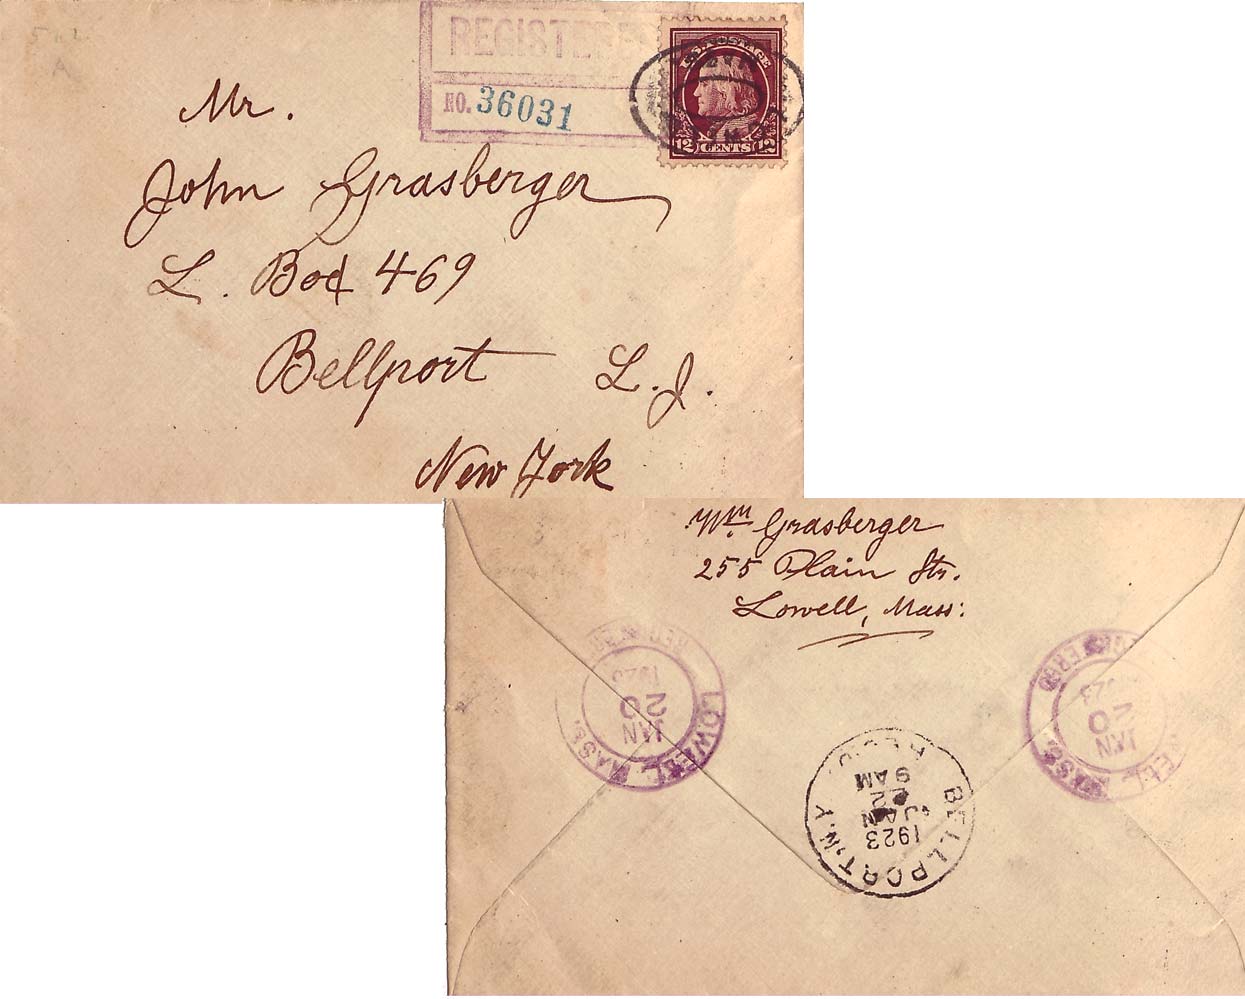 REGISTERED
NO. 36031
U.S. POSTAGE
12 CENTS 12
Mr.
John Grasberger
L. Box 469
Bellport L. I.
New York
Wm Grasberger
255 Plain Str.
Lowell, Mass:
REGISTERED
LOWELL, MASS.
JAN
20
1923
REGISTERED
LOWELL, MASS.
JAN
20
1923
BELLPORT, N.Y.
1923
JAN
22
9 AM
REC'D.